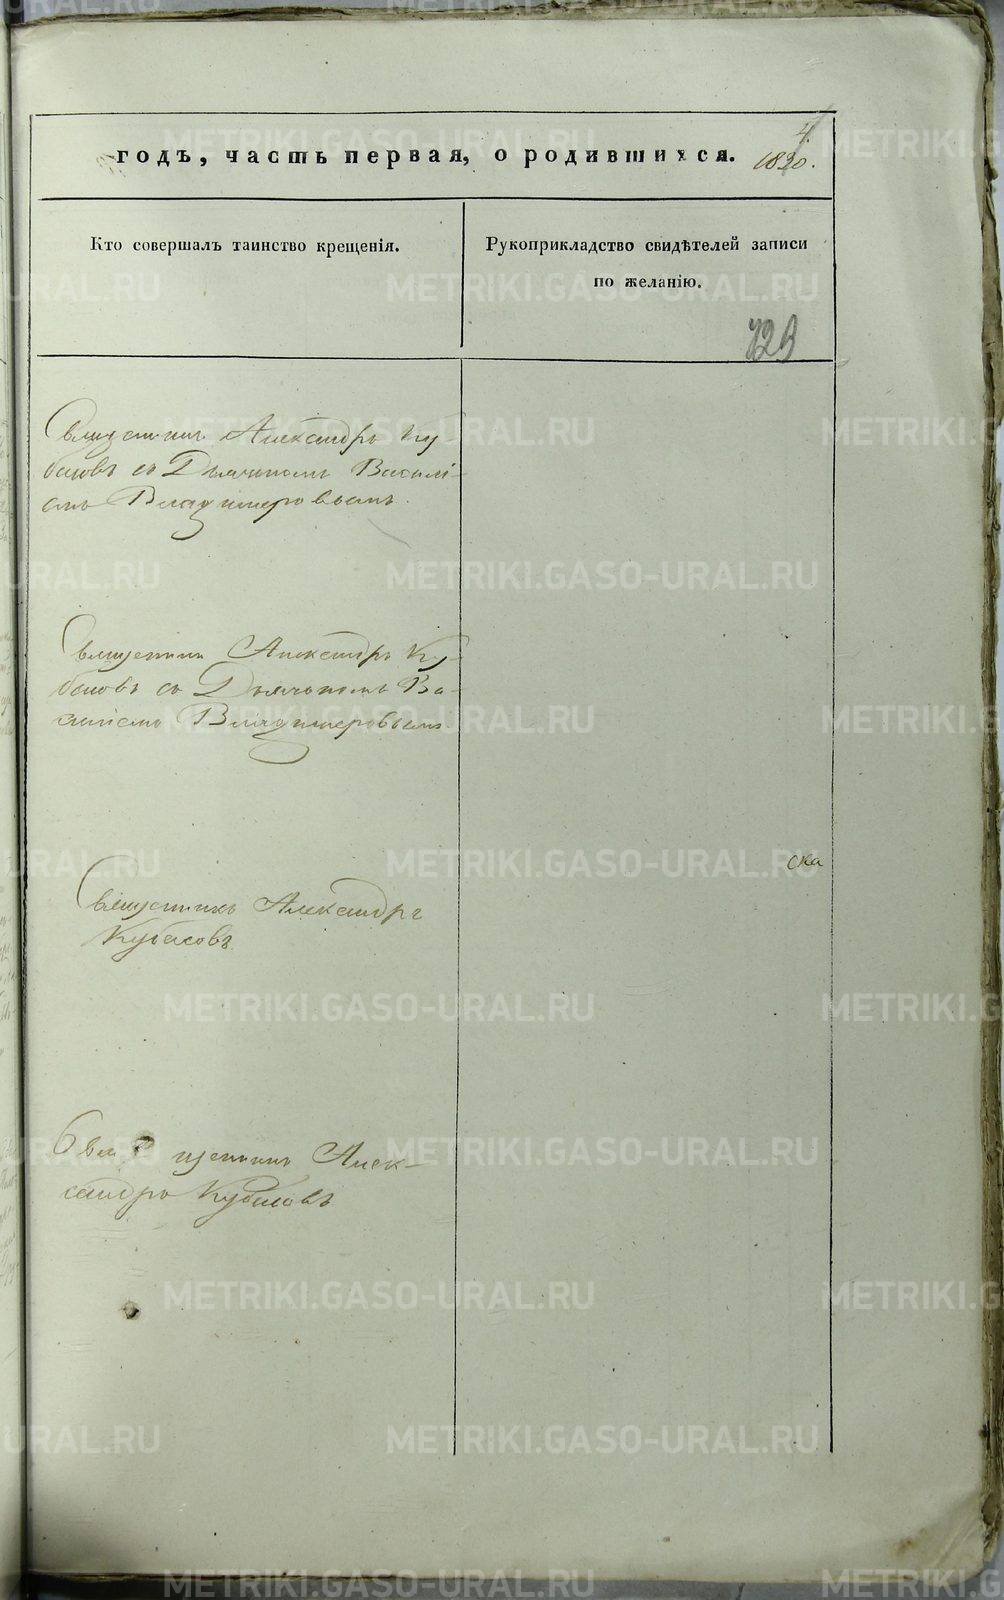 годъ, часть первая, о родившихся.
4.
Кто совершалъ таинство крещенія.
Рукоприкладство свидѣтелей записи
по желанію.
Священникъ Александръ Ку-
басовъ съ Дьячкомъ Василі-
емъ Владимеровымъ.
Священникъ Александръ Ку-
басовъ съ Дьячкомъ Ва-
силіемъ Владимеровымъ.
Священникъ Александръ
Кубасовъ
ска
Священникъ Алек-
сандръ Кубасовъ
METRIKI.GASO-URAL.RU